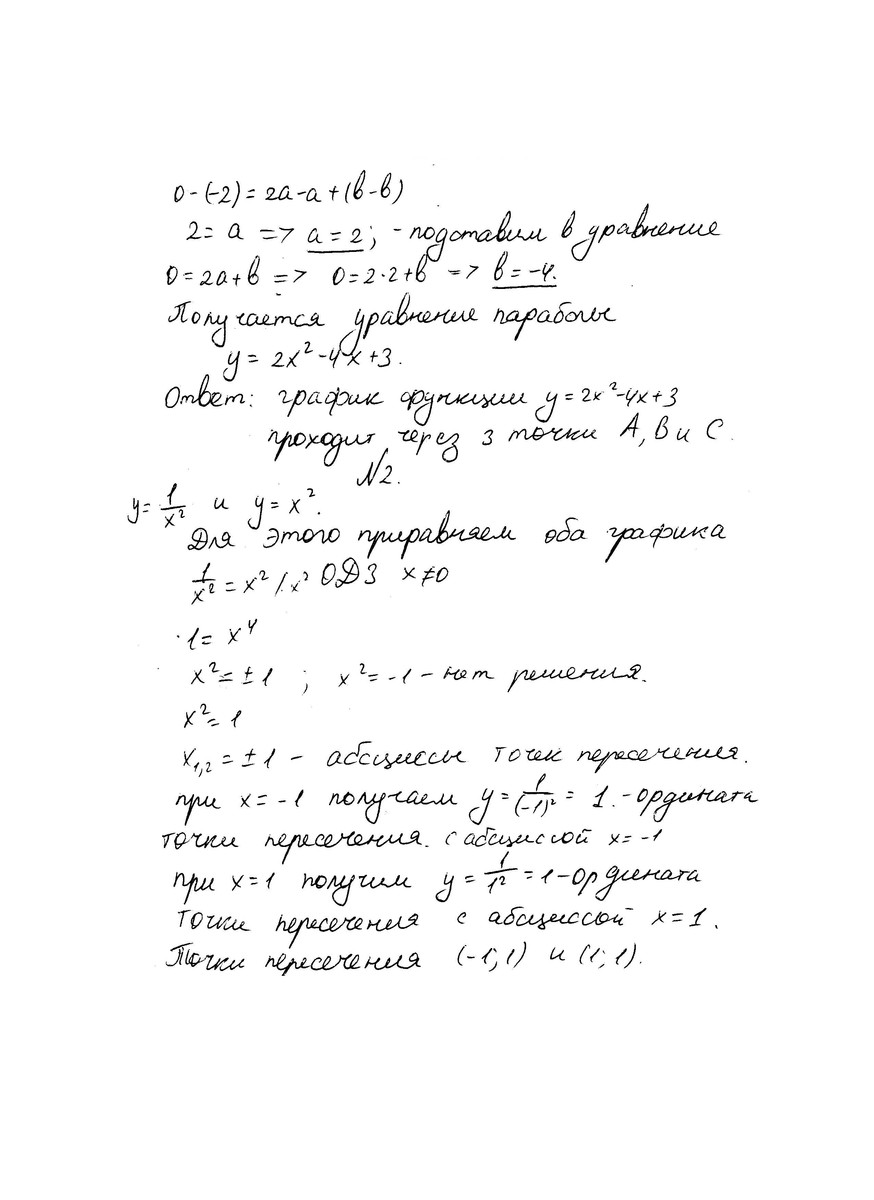 0-(-2)=2a-a+(в-в)
2=a => a=2; - подставим в уравнение
0=2a+в => 0=2·2+в => в=-4.
Получается уравнение параболы
y=2x²-4x+3.
Ответ: график функции y=2x²-4x+3
проходит через 3 точки A, B и C.
N2.
y=1/x² и y=x².
Для этого приравняем оба графика
1/x²=x² /·x² ОДЗ x≠0
1=x⁴
x²=±1 ; x²=-1 - нет решения.
x²=1
x₁,₂=±1 - абсциссы точек пересечения.
при x=-1 получаем y=1/(-1)²=1.-ордината
точки пересечения. с абсциссой x=-1
при x=1 получим y=1/1²=1-ордината
точки пересечения с абсциссой x=1.
Точки пересечения (-1;1) и (1;1).